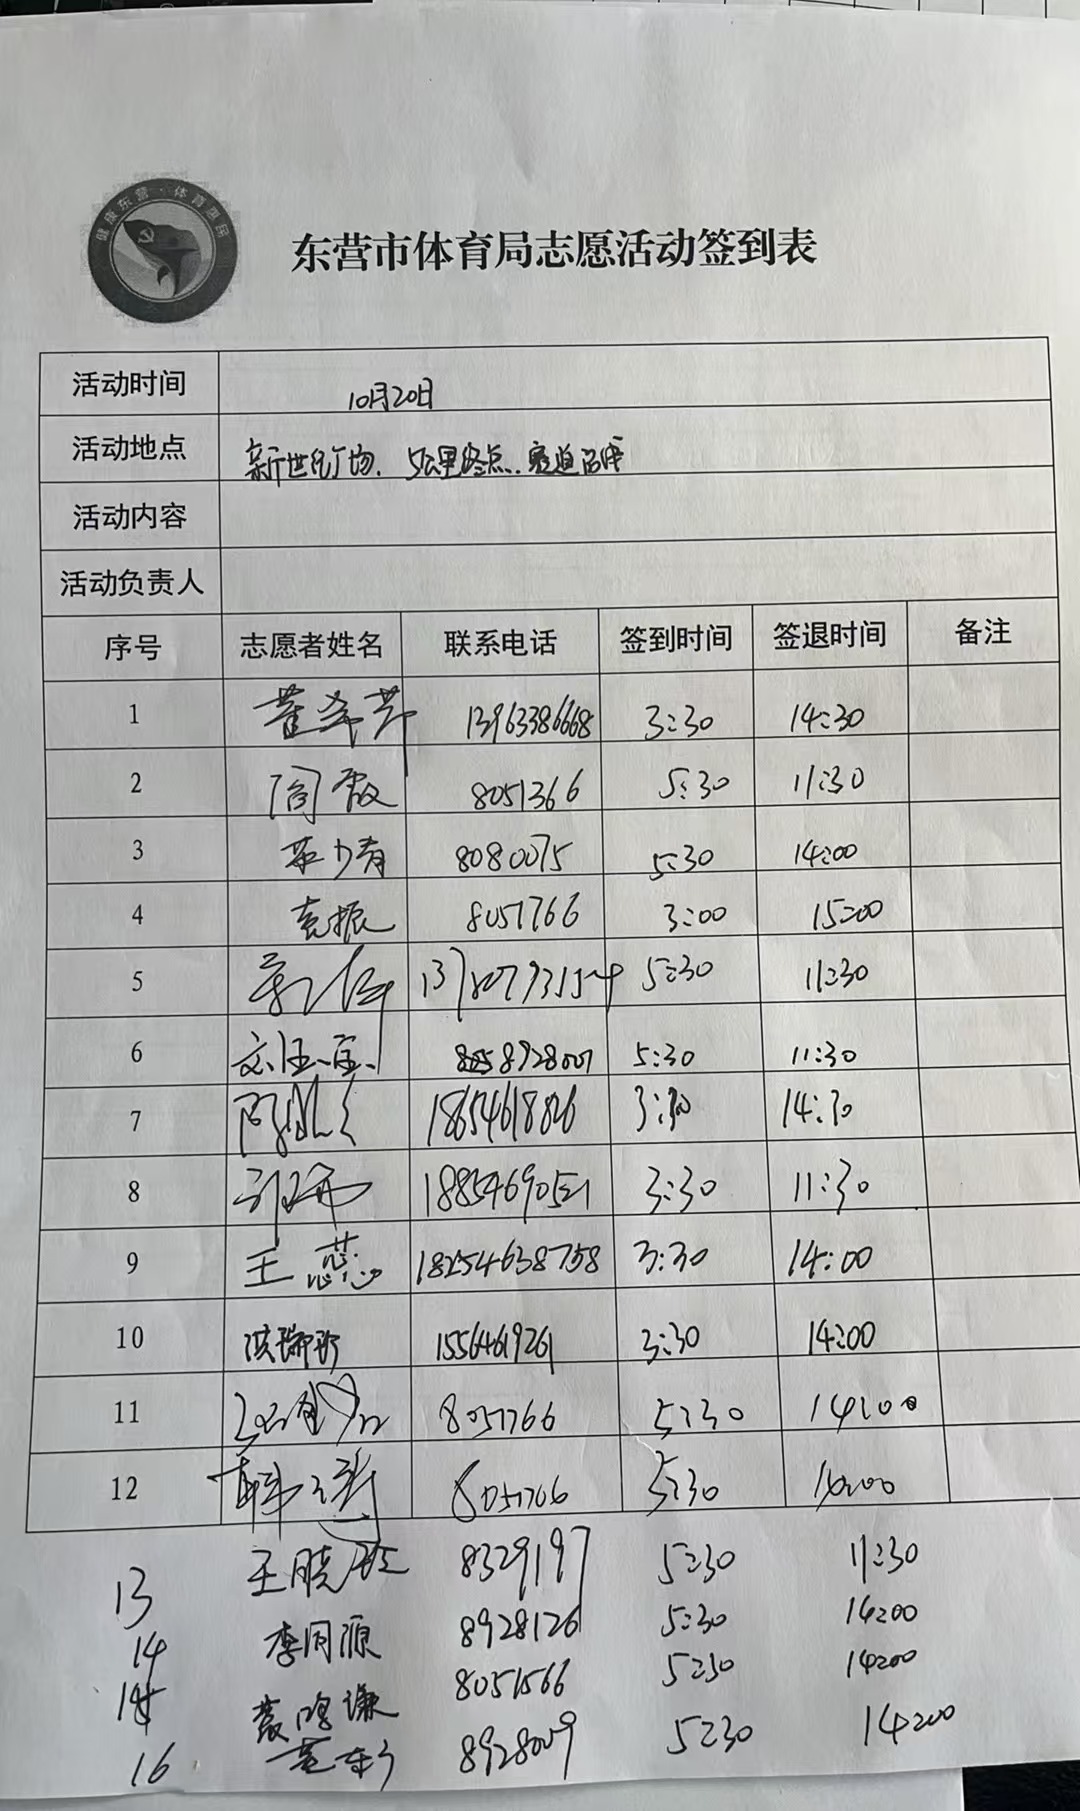 健康东营·体育惠民
东营市体育局志愿活动签到表
活动时间 10月20日
活动地点 新世纪广场、5公里终点、赛道沿线
活动内容
活动负责人
序号 志愿者姓名 联系电话 签到时间 签退时间 备注
1 13963386668 3:30 14:30
2 8051366 5:30 11:30
3 8080075 5:30 14:00
4 袁振 8051766 3:00 15:00
5 5:30 11:30
6 5:30 11:30
7 18654618826 3:30 14:30
8 18854690521 3:30 11:30
9 王蕊 18254638758 3:30 14:00
10 洪瑞彤 1556461926 3:30 14:00
11 8051766 5:30 14:00
12 8051766 5:30 14:00
13 王晓玲 8329197 5:30 11:30
14 李同源 8928126 5:30 14:00
15 8051566 5:30 14:00
16 8928009 5:30 14:00